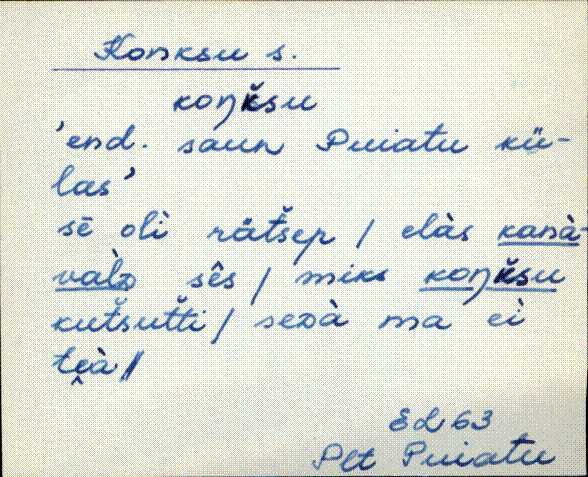 Konksu s.
koŋk̆su
'end. saun Puiatu kü-
las'
sē olì rätšep / elàs kanà-
valᴅ sês / miks koŋk̆su
kutšutti / seᴅà ma ei
tèà //
EL 63
Plt Puiatu